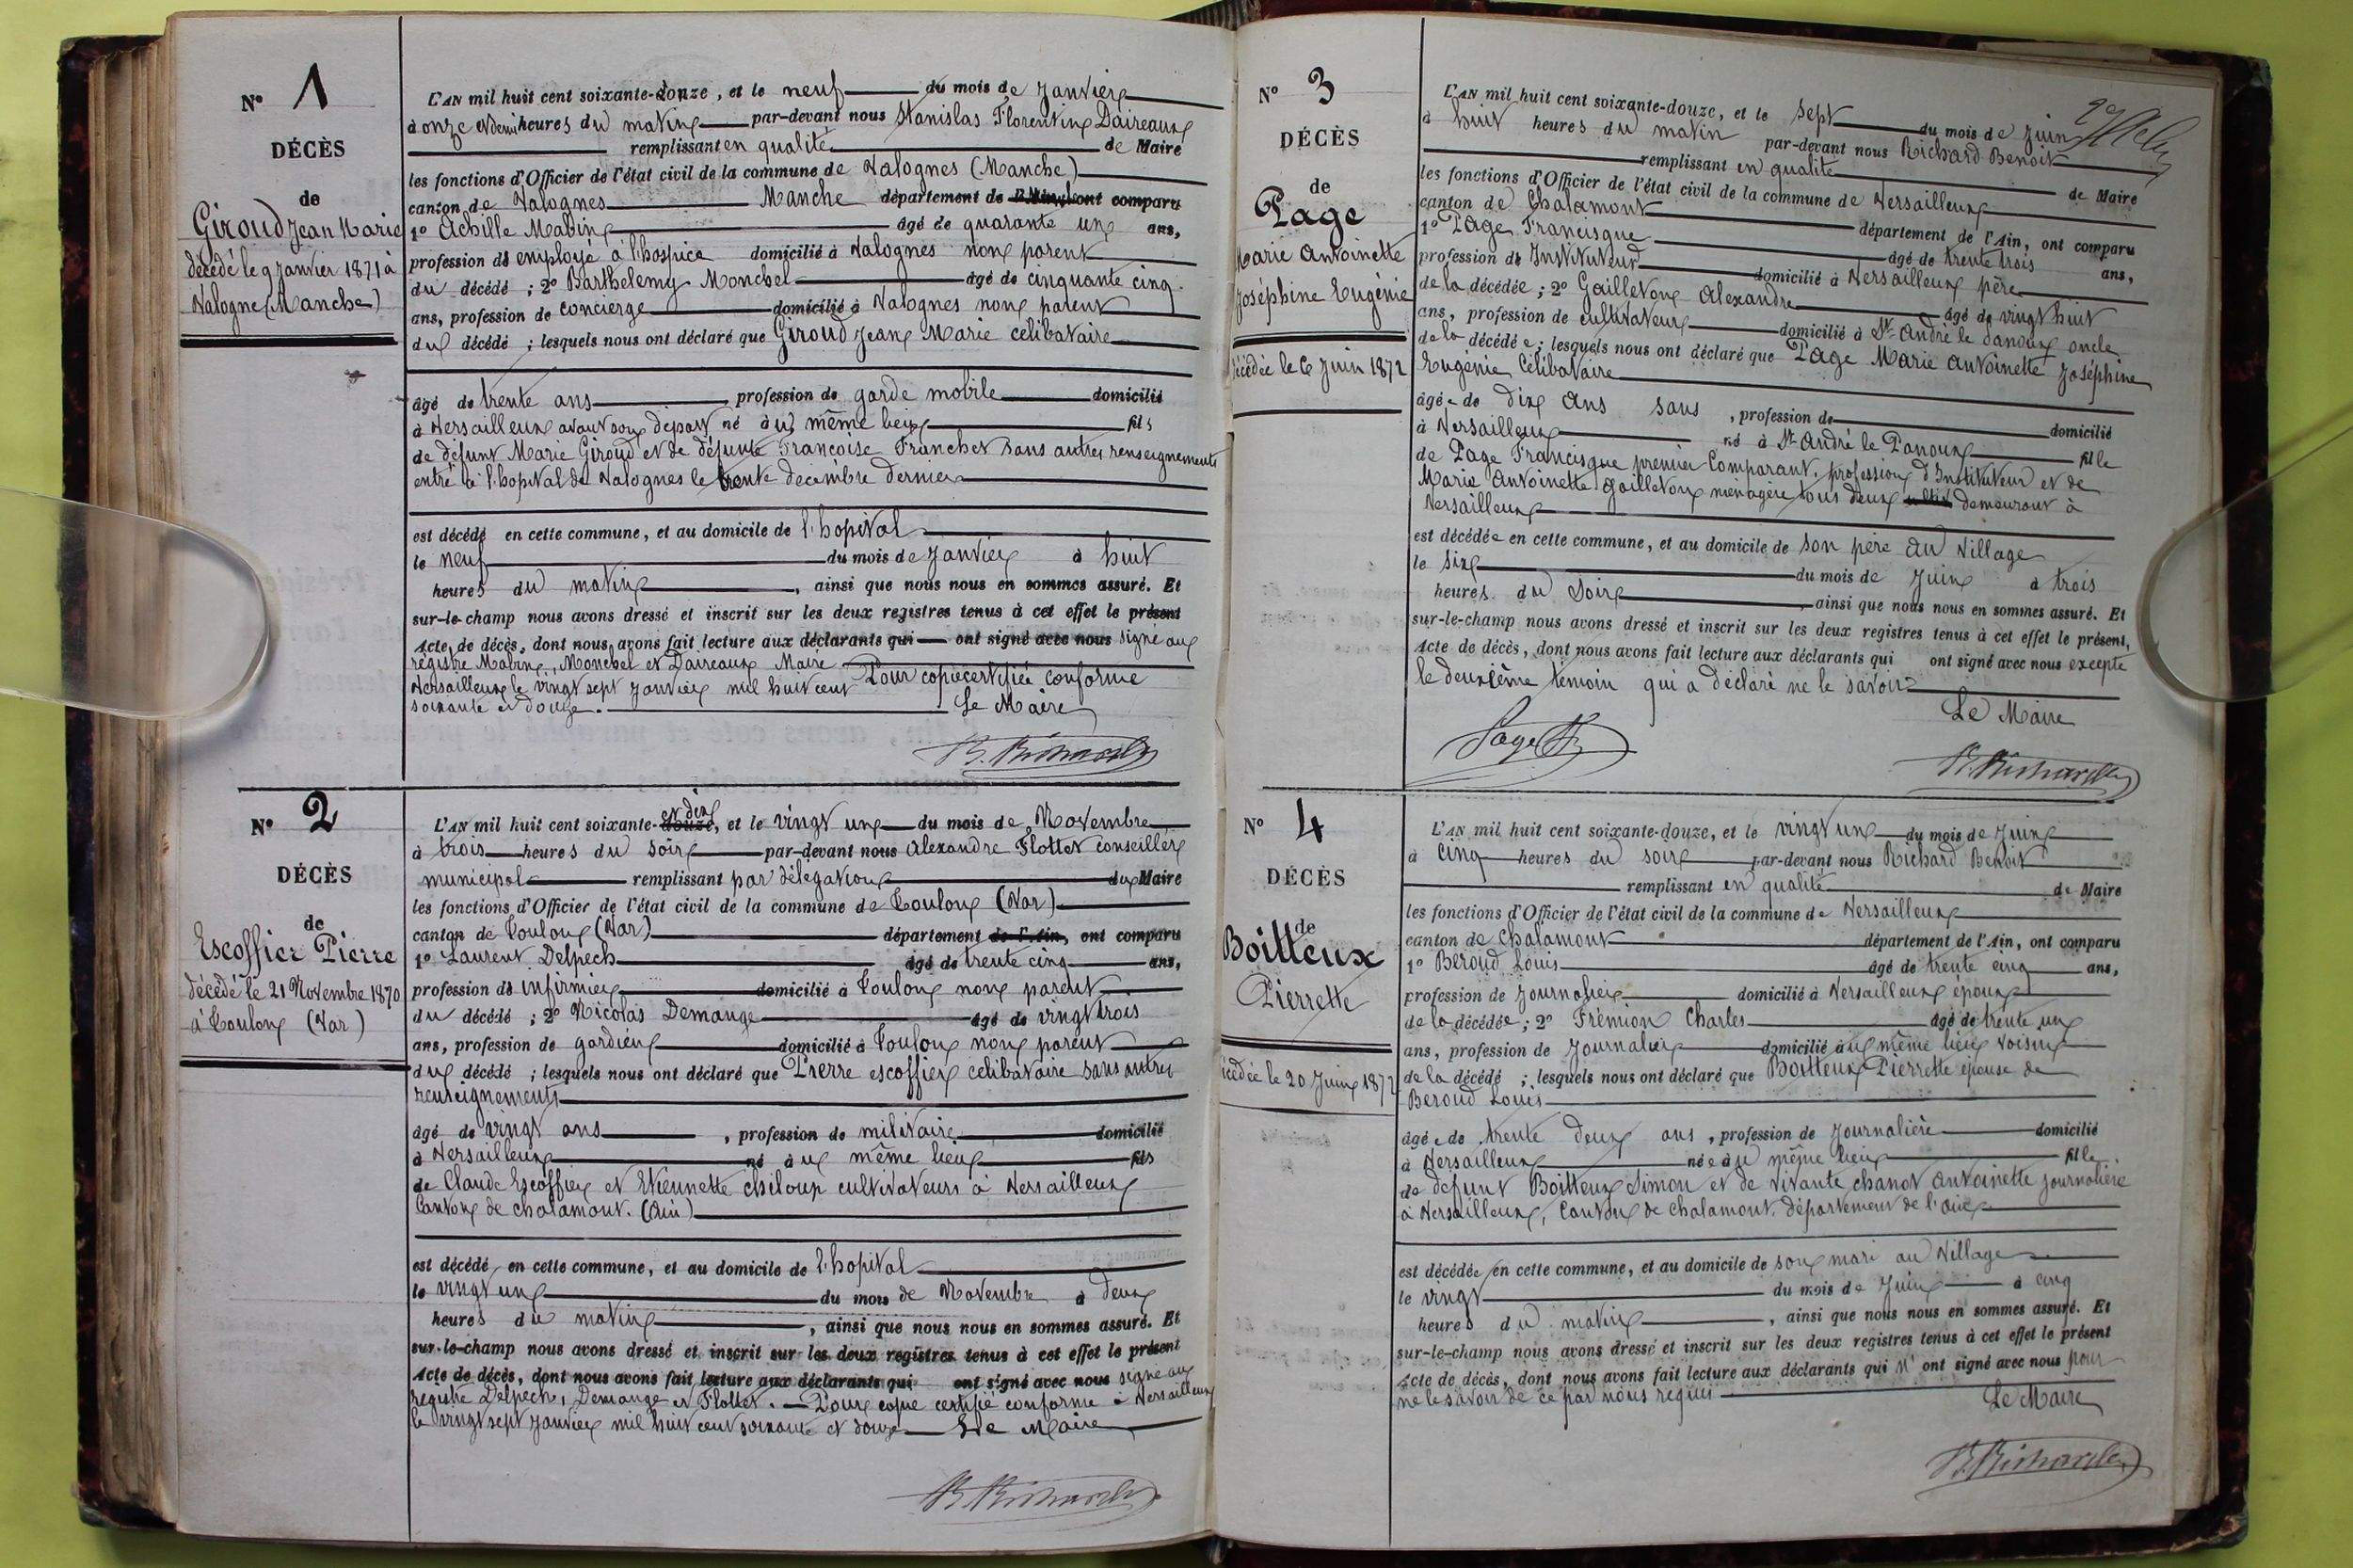 N° 1
DÉCÈS
de
Giroud Jean Marie
décédé le 9 Janvier 1871 à
Valogne (Manche)
L'AN mil huit cent soixante-douze, et le neuf du mois de Janvier
à onze et demi heures du matin par-devant nous Stanislas Florentin Daireaux
remplissant en qualité de Maire
les fonctions d'Officier de l'état civil de la commune de Valognes (Manche)
canton de Valognes Manche département de l'Ain, ont comparu
1° Achille Mabin âgé de quarante un ans,
profession de employé à l'hospice domicilié à Valognes non parent
du décédé ; 2° Barthelemy Monchel âgé de cinquante cinq
ans, profession de concierge domicilié à Valognes non parent
du décédé ; lesquels nous ont déclaré que Giroud Jean Marie celibataire
âgé de trente ans profession de garde mobile domicilié
à Versailleux avant son départ né au même lieu fils
de défunt Marie Giroud et de défunte Françoise Franchet sans autres renseignements
entré à l'hopital de Valognes le trente décembre dernier
est décédé en cette commune, et au domicile de l'hopital
le neuf du mois de Janvier à huit
heures du matin, ainsi que nous nous en sommes assuré. Et
sur-le-champ nous avons dressé et inscrit sur les deux registres tenus à cet effet le présent
Acte de décès, dont nous avons fait lecture aux déclarants qui ont signé avec nous signé au
régistre Mabin, Monchel et Daireaux Maire Pour copie certifiée conforme
Versailleux le vingt sept Janvier mil huit cent
soixante et douze. Le Maire
B. Richard
N° 2
DÉCÈS
de
Escoffier Pierre
décédé le 21 Novembre 1870
à Toulon (Var)
et dix
L'AN mil huit cent soixante-douze, et le vingt un du mois de Novembre
à trois heures du soir par-devant nous Alexandre Flottet conseiller
municipal remplissant par délégation du Maire
les fonctions d'Officier de l'état civil de la commune de Toulon (Var)
canton de Toulon (Var) département de l'Ain, ont comparu
1° Laurent Delpech âgé de trente cinq ans,
profession de infirmier domicilié à Toulon non parent
du décédé ; 2° Nicolas Demange âgé de vingt trois
ans, profession de gardien domicilié à Toulon non parent
du décédé ; lesquels nous ont déclaré que Pierre escoffier celibataire sans autres
renseignements
âgé de vingt ans, profession de militaire domicilié
à Versailleux né au même lieu fils
de Claude Escoffier et Etiennette chiloup cultivateurs à Versailleux
Canton de chalamont. (Ain)
est décédé en cette commune, et au domicile de l'hopital
le vingt un du mois de Novembre à deux
heures du matin, ainsi que nous nous en sommes assuré. Et
sur-le-champ nous avons dressé et inscrit sur les deux registres tenus à cet effet le présent
Acte de décès, dont nous avons fait lecture aux déclarants qui ont signé avec nous signé au
registre Delpech, Demange et Flottet. — Pour copie certifié conforme à Versailleux
le vingt sept Janvier mil huit cent soixante et douze Le Maire
B Richard
N° 3
DÉCÈS
de
Page
Marie Antoinette
Joséphine Eugénie
décédée le 6 Juin 1872
L'AN mil huit cent soixante-douze, et le sept du mois de Juin
à huit heures du matin par-devant nous Richard Benoit
remplissant en qualité de Maire
les fonctions d'Officier de l'état civil de la commune de Versailleux
canton de Chalamont département de l'Ain, ont comparu
1° Page Francisque âgé de trente trois ans,
profession de Instituteur domicilié à Versailleux père
de la décédée ; 2° Gailleton Alexandre âgé de vingt huit
ans, profession de cultivateur domicilié à St André le Panoux oncle
de la décédée ; lesquels nous ont déclaré que Page Marie Antoinette Joséphine
Eugénie Célibataire
âgée de dix ans sans, profession de domicilié
à Versailleux né à St André le Panoux fille
de Page Francisque premier Comparant, profession d'Instituteur et de
Marie Antoinette Gailleton ménagère tous deux demeurant à
Versailleux
est décédée en cette commune, et au domicile de son père au Village
le six du mois de Juin à trois
heures du Soir, ainsi que nous nous en sommes assuré. Et
sur-le-champ nous avons dressé et inscrit sur les deux registres tenus à cet effet le présent,
Acte de décès, dont nous avons fait lecture aux déclarants qui ont signé avec nous excepté
le deuxième témoin qui a déclaré ne le savoir
Le Maire
Page F
B. Richard
N° 4
DÉCÈS
de
Boitteux
Pierrette
décédée le 20 Juin 1872
L'AN mil huit cent soixante-douze, et le vingt un du mois de Juin
à cinq heures du soir par-devant nous Richard Benoit
remplissant en qualité de Maire
les fonctions d'Officier de l'état civil de la commune de Versailleux
canton de Chalamont département de l'Ain, ont comparu
1° Beroud Louis âgé de trente cinq ans,
profession de Journalier domicilié à Versailleux époux
de la décédée ; 2° Frémion Charles âgé de trente un
ans, profession de Journalier domicilié au même lieu voisin
de la décédé ; lesquels nous ont déclaré que Boitteux Pierrette épouse de
Beroud Louis
âgée de trente deux ans, profession de Journalière domicilié
à Versailleux née au même lieu fille
de défunt Boitteux Simon et de vivante chanot Antoinette Journalière
à Versailleux, Canton de Chalamont, département de l'ain
est décédée en cette commune, et au domicile de son mari au Village
le vingt du mois de Juin à cinq
heures du matin, ainsi que nous nous en sommes assuré. Et
sur-le-champ nous avons dressé et inscrit sur les deux registres tenus à cet effet le présent
Acte de décès, dont nous avons fait lecture aux déclarants qui n'ont signé avec nous pour
ne le savoir de ce par nous requis
Le Maire
B. Richard